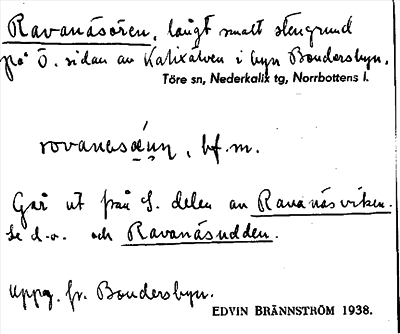 Ravanäsören, långt smalt stengrund
på Ö. sidan av Kalixälven i byn Bondersbyn.
Töre sn, Nederkalix tg, Norrbottens l.
bf. m.
Går ut från S. delen av Ravanäsviken.
Se d. o. och Ravanäsudden.
Uppg. fr. Bondersbyn.
EDVIN BRÄNNSTRÖM 1938.